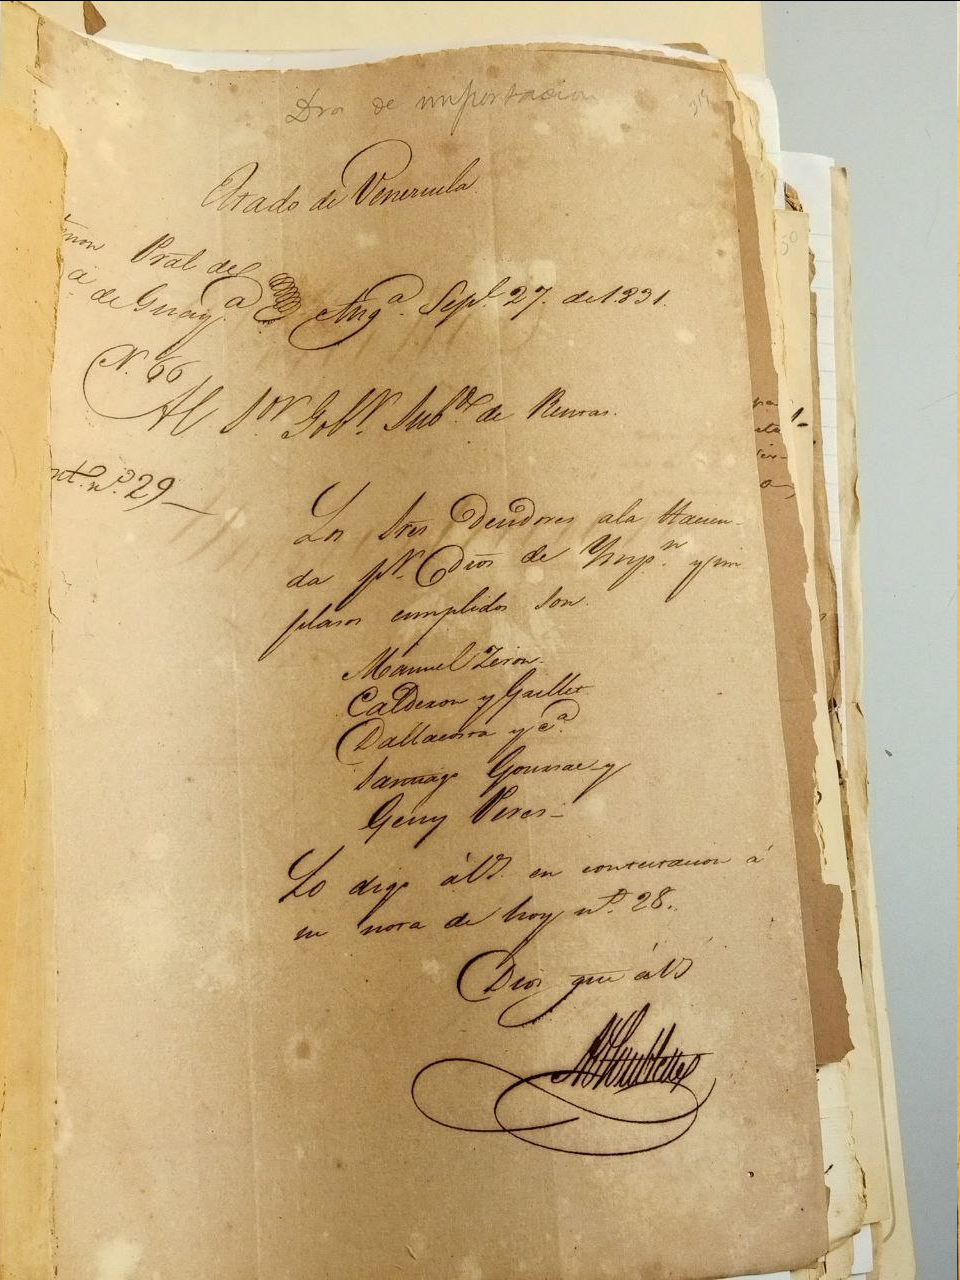 Dros de importacion
319
Estado de Venezuela
Pral del
de Guayª Angª. Sepe. 27. de 1831.
N. 66
Al Sor Gobr. Subdo de Rentas.
nt. nº. 29
Los Sres Deudores ala Hacien-
da pr. Dros de Ympn. y sin
plasos cumplidos son
Manuel Zeron.
Calderon y Guillet
Dallacosta y cª.
Santiago
Gerry Peres
Lo digo á VS. en contestacion á
su nota de hoy nº. 28.
Dios gue á VS
50